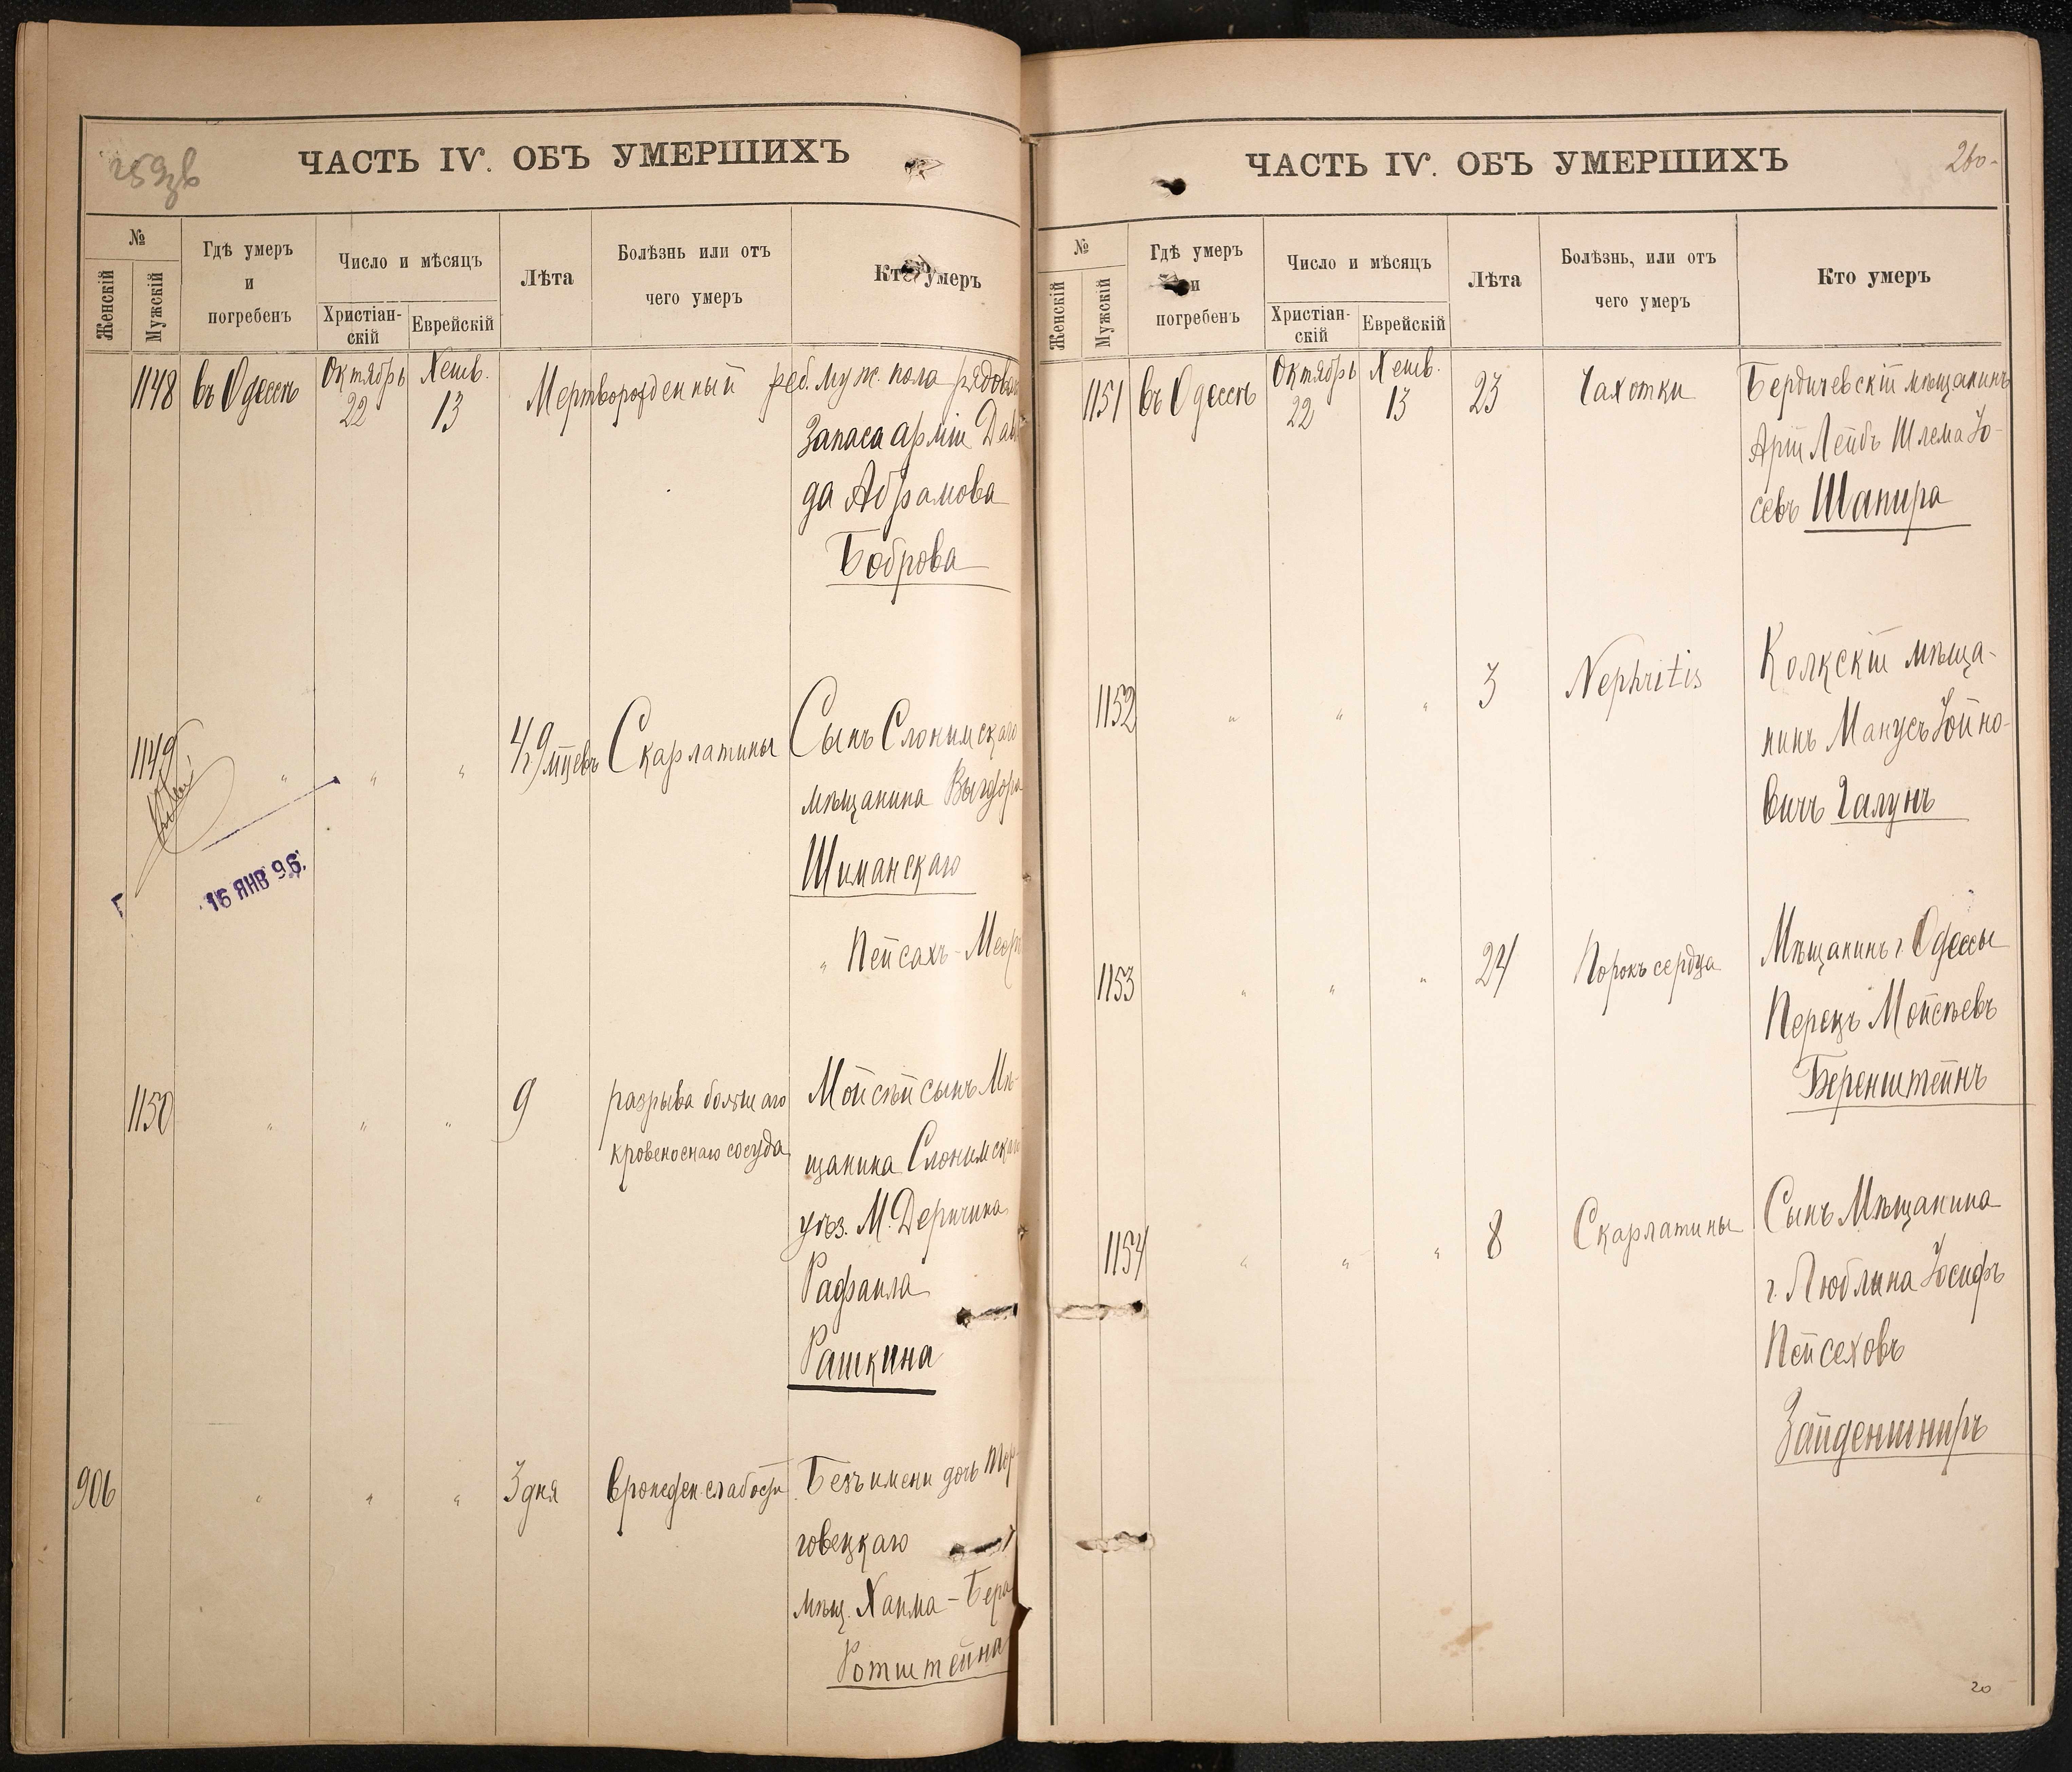 259 зв
ЧАСТЬ IV. ОБЪ УМЕРШИХЪ
№
Женскій
Мужскій
Гдѣ умеръ
и
погребенъ
Число и мѣсяцъ
Христіан-
скій
Еврейскій
Лѣта
Болѣзнь или отъ
чего умеръ
Кто умеръ
1148 въ Одессѣ Октябрь 22 Хешв. 13 Мертворожденный реб. муж. пола рядового
Запаса арміи Дави
да Абрамова
Боброва
1149 " " " 4/29 мцевъ Скарлатины Сынъ Слонимскаго
мѣщанина Выгдора
Шиманскаго
" Пейсахъ-Меер
16 ЯНВ 96.
1150 " " " 9 разрыва большаго Мойсѣй сынъ Мѣ-
кровеноснаго сосуда щанина Слонимскаго
уѣз. М. Деричина
Рафаила
Рашкина
906 " " " 3 дня врожден. слабости Безъ имени дочь Тор-
говецкаго
мѣщ. Хаима-Бера
Ротштейна
260-
ЧАСТЬ IV. ОБЪ УМЕРШИХЪ
№
Женскій
Мужскій
Гдѣ умеръ
и
погребенъ
Число и мѣсяцъ
Христіан-
скій
Еврейскій
Лѣта
Болѣзнь, или отъ
чего умеръ
Кто умеръ
1151 въ Одессѣ Октябрь 22 Хешв. 13 23 Чахотки Бердичевскій мѣщанинъ
Арій Лейбъ Шлема Іо-
севъ Шапира
1152 " " " 3 Nephritis Колкскій мѣща-
нинъ Манусъ Іойно-
вичъ Галунъ
1153 " " " 24 Порокъ сердца Мѣщанинъ г. Одессы
Перецъ Мойсѣевъ
Беренштейнъ
1154 " " " 8 Скарлатины Сынъ Мѣщанина
г. Люблина Іосифъ
Пейсеховъ
Зайденшниръ
20